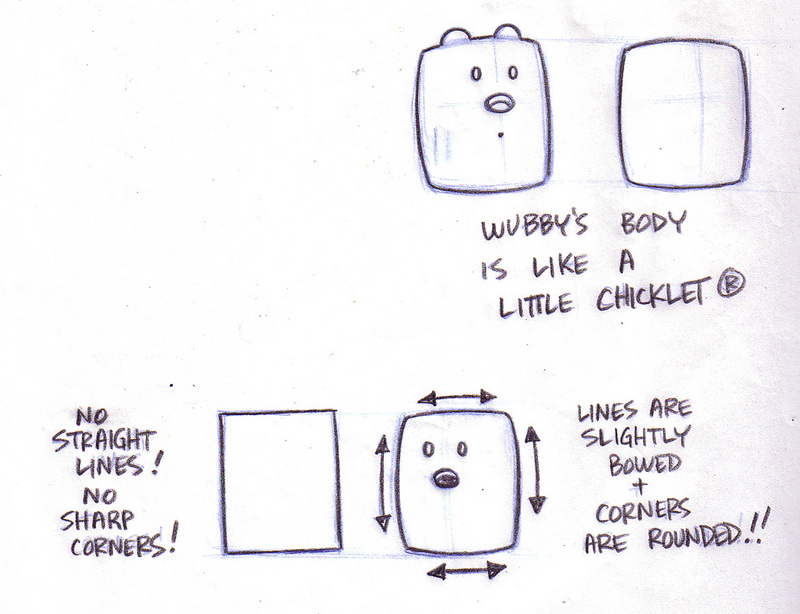 WUBBY'S BODY
IS LIKE A
LITTLE CHICKLET ®
NO
STRAIGHT
LINES!
NO
SHARP
CORNERS!
LINES ARE
SLIGHTLY
BOWED
+
CORNERS
ARE ROUNDED!!